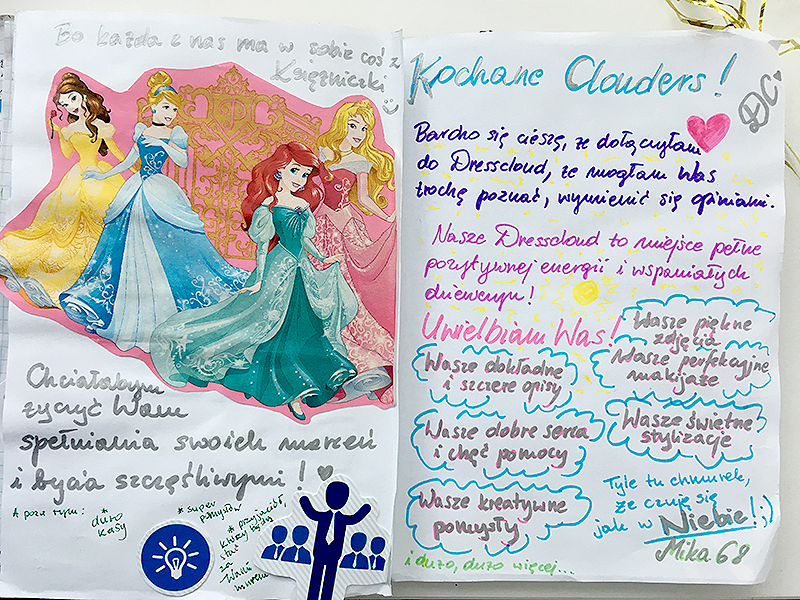 Bo każda z nas ma w sobie coś z
Księżniczki
Chciałabym
życzyć Wam
spełniania swoich marzeń
i bycia szczęśliwymi!
A poza tym:
* dużo
kasy
* super
pomysłów
* przyjaciół,
którzy będą
stać
za
Wami
murem
Kochane Clouders!
DC
Bardzo się cieszę, że dołączyłam
do Dresscloud, że mogłam Was
trochę poznać, wymienić się opiniami.
Nasze Dresscloud to miejsce pełne
pozytywnej energii i wspaniałych
dziewczyn!
Uwielbiam Was!
Wasze piękne
zdjęcia
Wasze dokładne
i szczere opisy
Wasze perfekcyjne
makijaże
Wasze dobre serca
i chęć pomocy
Wasze świetne
stylizacje
Wasze kreatywne
pomysły
Tyle tu chmurek,
że czuję się
jak w Niebie! ;)
Mika68
i dużo, dużo więcej...